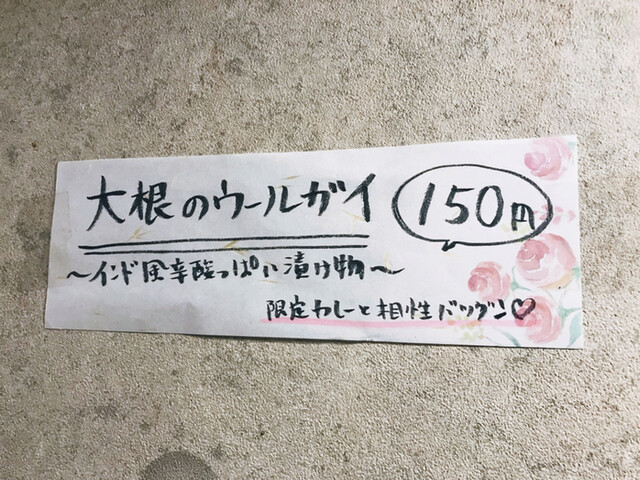 大根のウールガイ 150円
〜インド風辛酸っぱい漬け物〜
限定カレーと相性バツグン♡